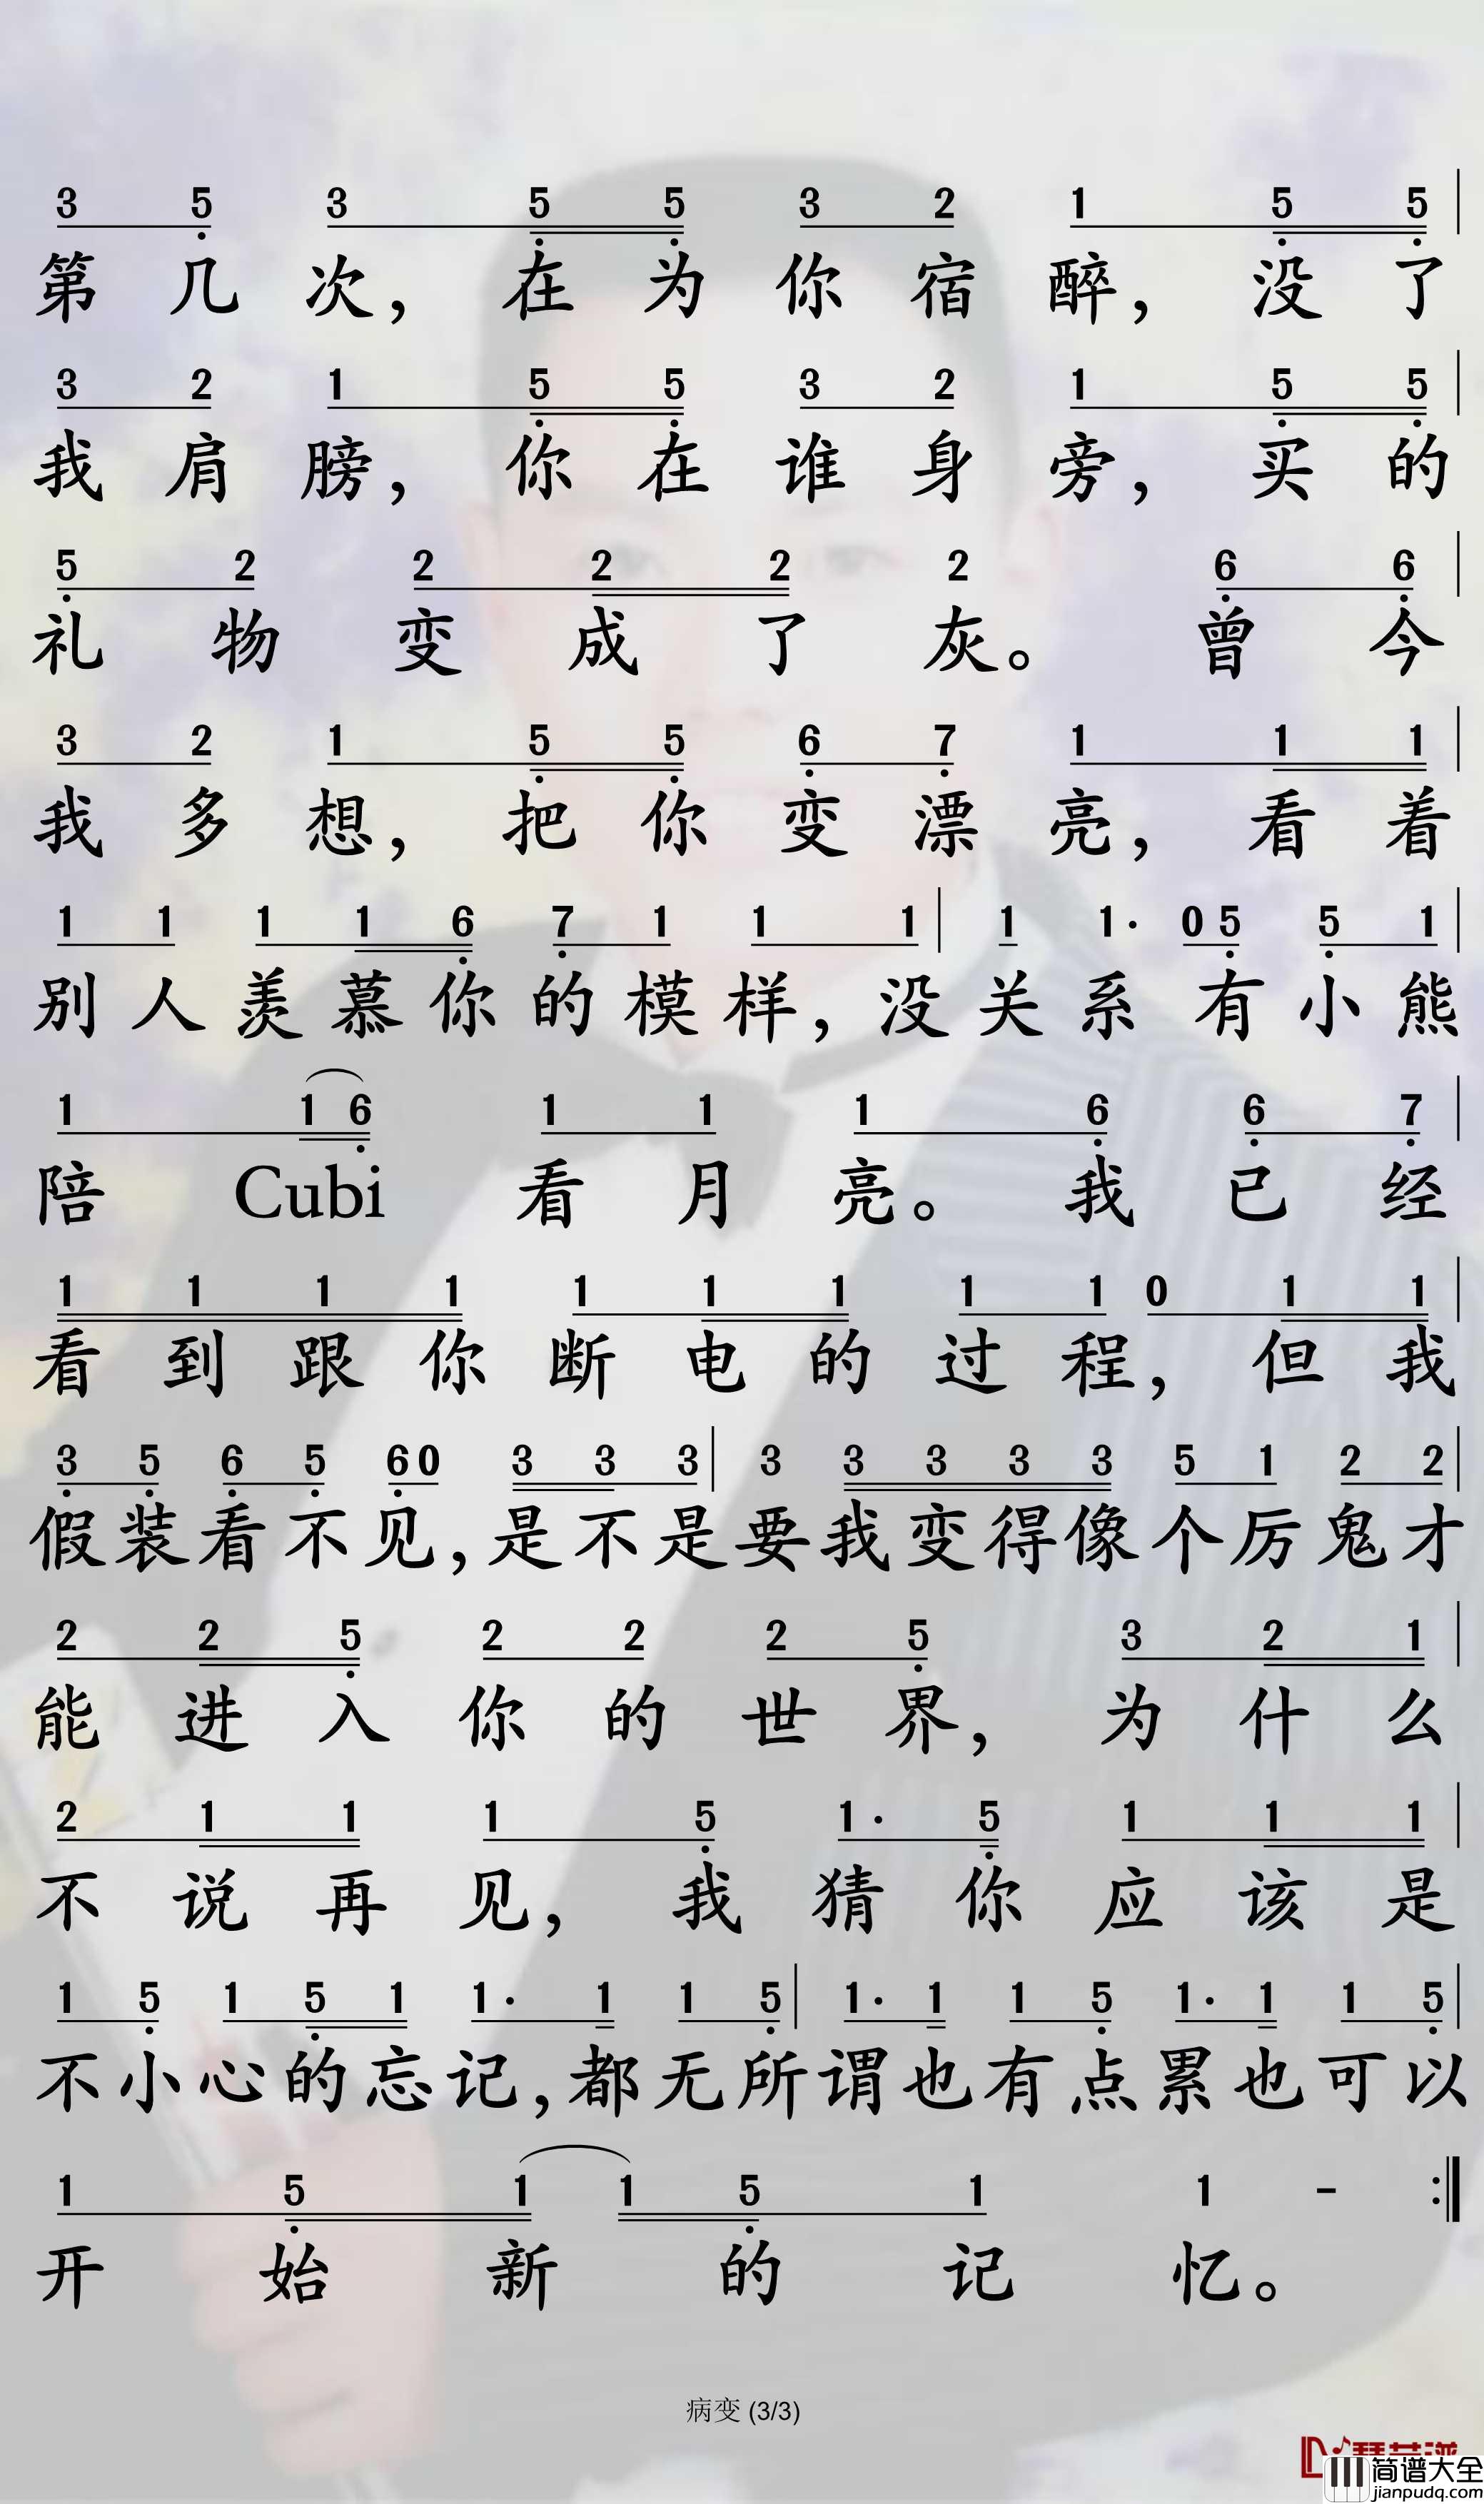 3 5 3 5 5 3 2 1 5 5
第几次，在为你宿醉，没了
3 2 1 5 5 3 2 1 5 5
我肩膀，你在谁身旁，买的
5 2 2 2 2 2 6 6
礼物变成了灰。曾今
3 2 1 5 5 6 7 1 1 1
我多想，把你变漂亮，看着
1 1 1 1 6 7 1 1 1 1 1· 0 5 5 1
别人羡慕你的模样，没关系有小熊
1 1 6 1 1 1 6 6 7
陪Cubi看月亮。我已经
1 1 1 1 1 1 1 1 1 0 1 1
看到跟你断电的过程，但我
3 5 6 5 6 0 3 3 3 3 3 3 3 3 5 1 2 2
假装看不见，是不是要我变得像个厉鬼才
2 2 5 2 2 2 5 3 2 1
能进入你的世界，为什么
2 1 1 1 5 1· 5 1 1 1
不说再见，我猜你应该是
1 5 1 5 1 1· 1 1 5 1· 1 1 5 1· 1 1 5
不小心的忘记，都无所谓也有点累也可以
1 5 1 1 5 1 1 -
开始新的记忆。
病变 (3/3)
简谱大全
jianpudq.com